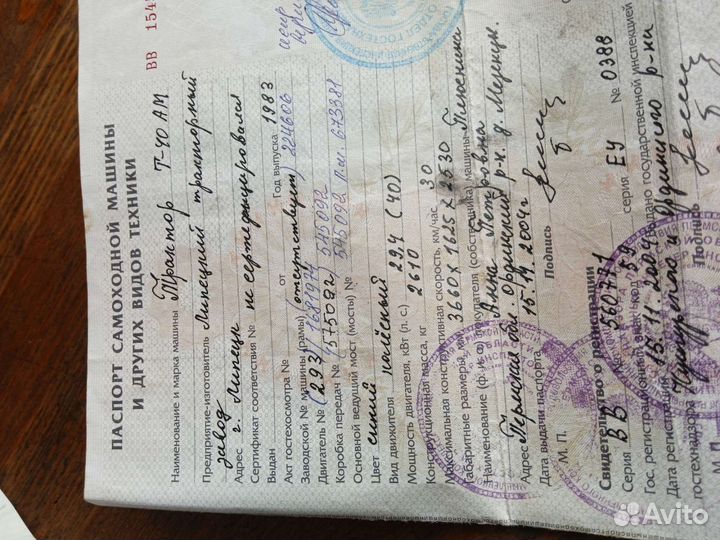 ВВ 154
ПАСПОРТ САМОХОДНОЙ МАШИНЫ
И ДРУГИХ ВИДОВ ТЕХНИКИ
Наименование и марка машины Трактор Т-40 АМ
Предприятие-изготовитель Липецкий тракторный
завод
Адрес г. Липецк
Сертификат соответствия № не сертифицировался
Выдан
Акт гостехосмотра № от Год выпуска 1983
Заводской № машины (рамы) отсутствует/224606
Двигатель № (293) 1681974
Коробка передач № (575092) 545092
Основной ведущий мост (мосты) № 545092 п.м. 673381
Цвет синий
Вид движителя колёсный
Мощность двигателя, кВт (л. с.) 29,4 (40)
Конструкционная масса, кг 2610
Максимальная конструктивная скорость, км/час 30
Габаритные размеры, мм 3660 х 1625 х 2530
Наименование (ф. и. о.) покупателя (собственника) машины
Анна Петровна
Адрес Пермская обл. Ординский р-н, д.
Дата выдачи паспорта 15.11.2004г
М. П. Подпись
Свидетельство о регистрации
Серия ВВ № 560771
Гос. регистрационный знак: код 59 серия ЕУ № 0388
Дата регистрации 15.11.2004 Выдано государственной инспекцией
гостехнадзора Кунгурского и Ординского р-на
М.П. Подпись
Avito